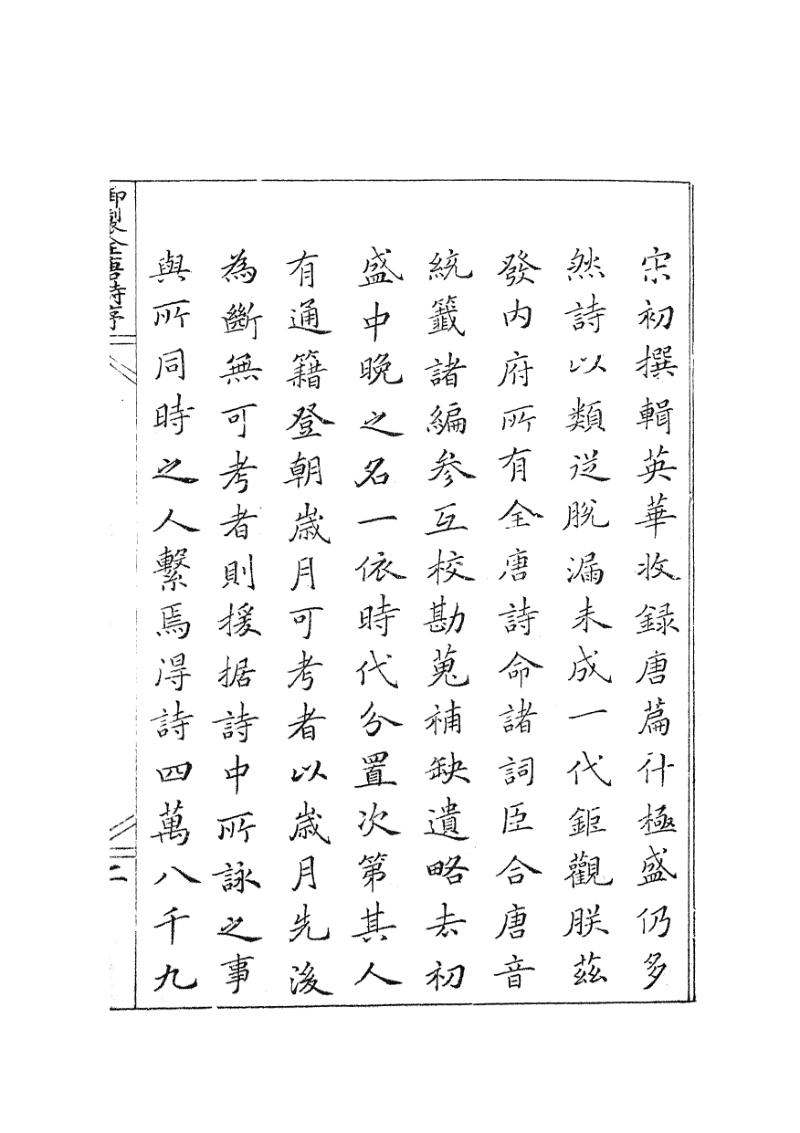 宋初撰輯英華收録唐篇什極盛仍多
然詩以類從脫漏未成一代鉅觀朕茲
發内府所有全唐詩命諸詞臣合唐音
統籤諸編參互校勘蒐補缺遺略去初
盛中晚之名一依時代分置次第其人
有通籍登朝歲月可考者以歲月先後
為斷無可考者則援据詩中所詠之事
與所同時之人繫焉得詩四萬八千九
御製全唐詩序
二